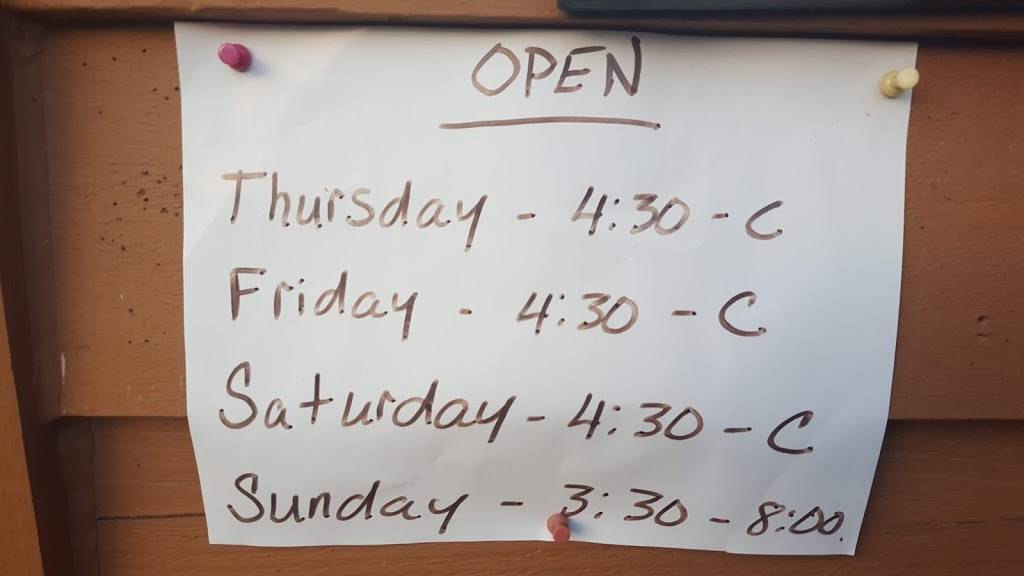 OPEN
Thursday - 4:30 - C
Friday - 4:30 - C
Saturday - 4:30 - C
Sunday - 3:30 - 8:00.